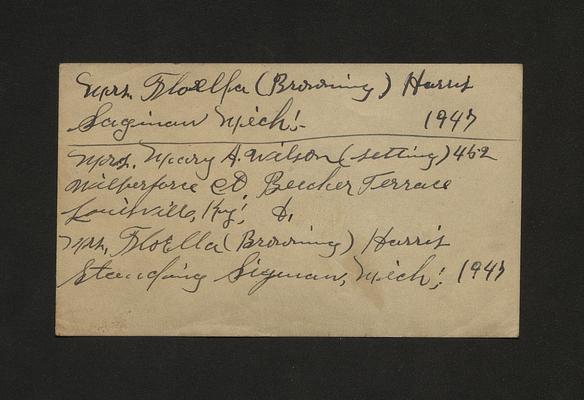 Mrs. Floella (Browning) Harris
Saginaw Mich! 1947
Mrs. Mary A. Wilson (setting) 452
Wilberforce Ct Beecher Terrace
Louisville, Ky! &
Mrs. FloElla (Browning) Harris
Standing Siginaw, Mich! 1947